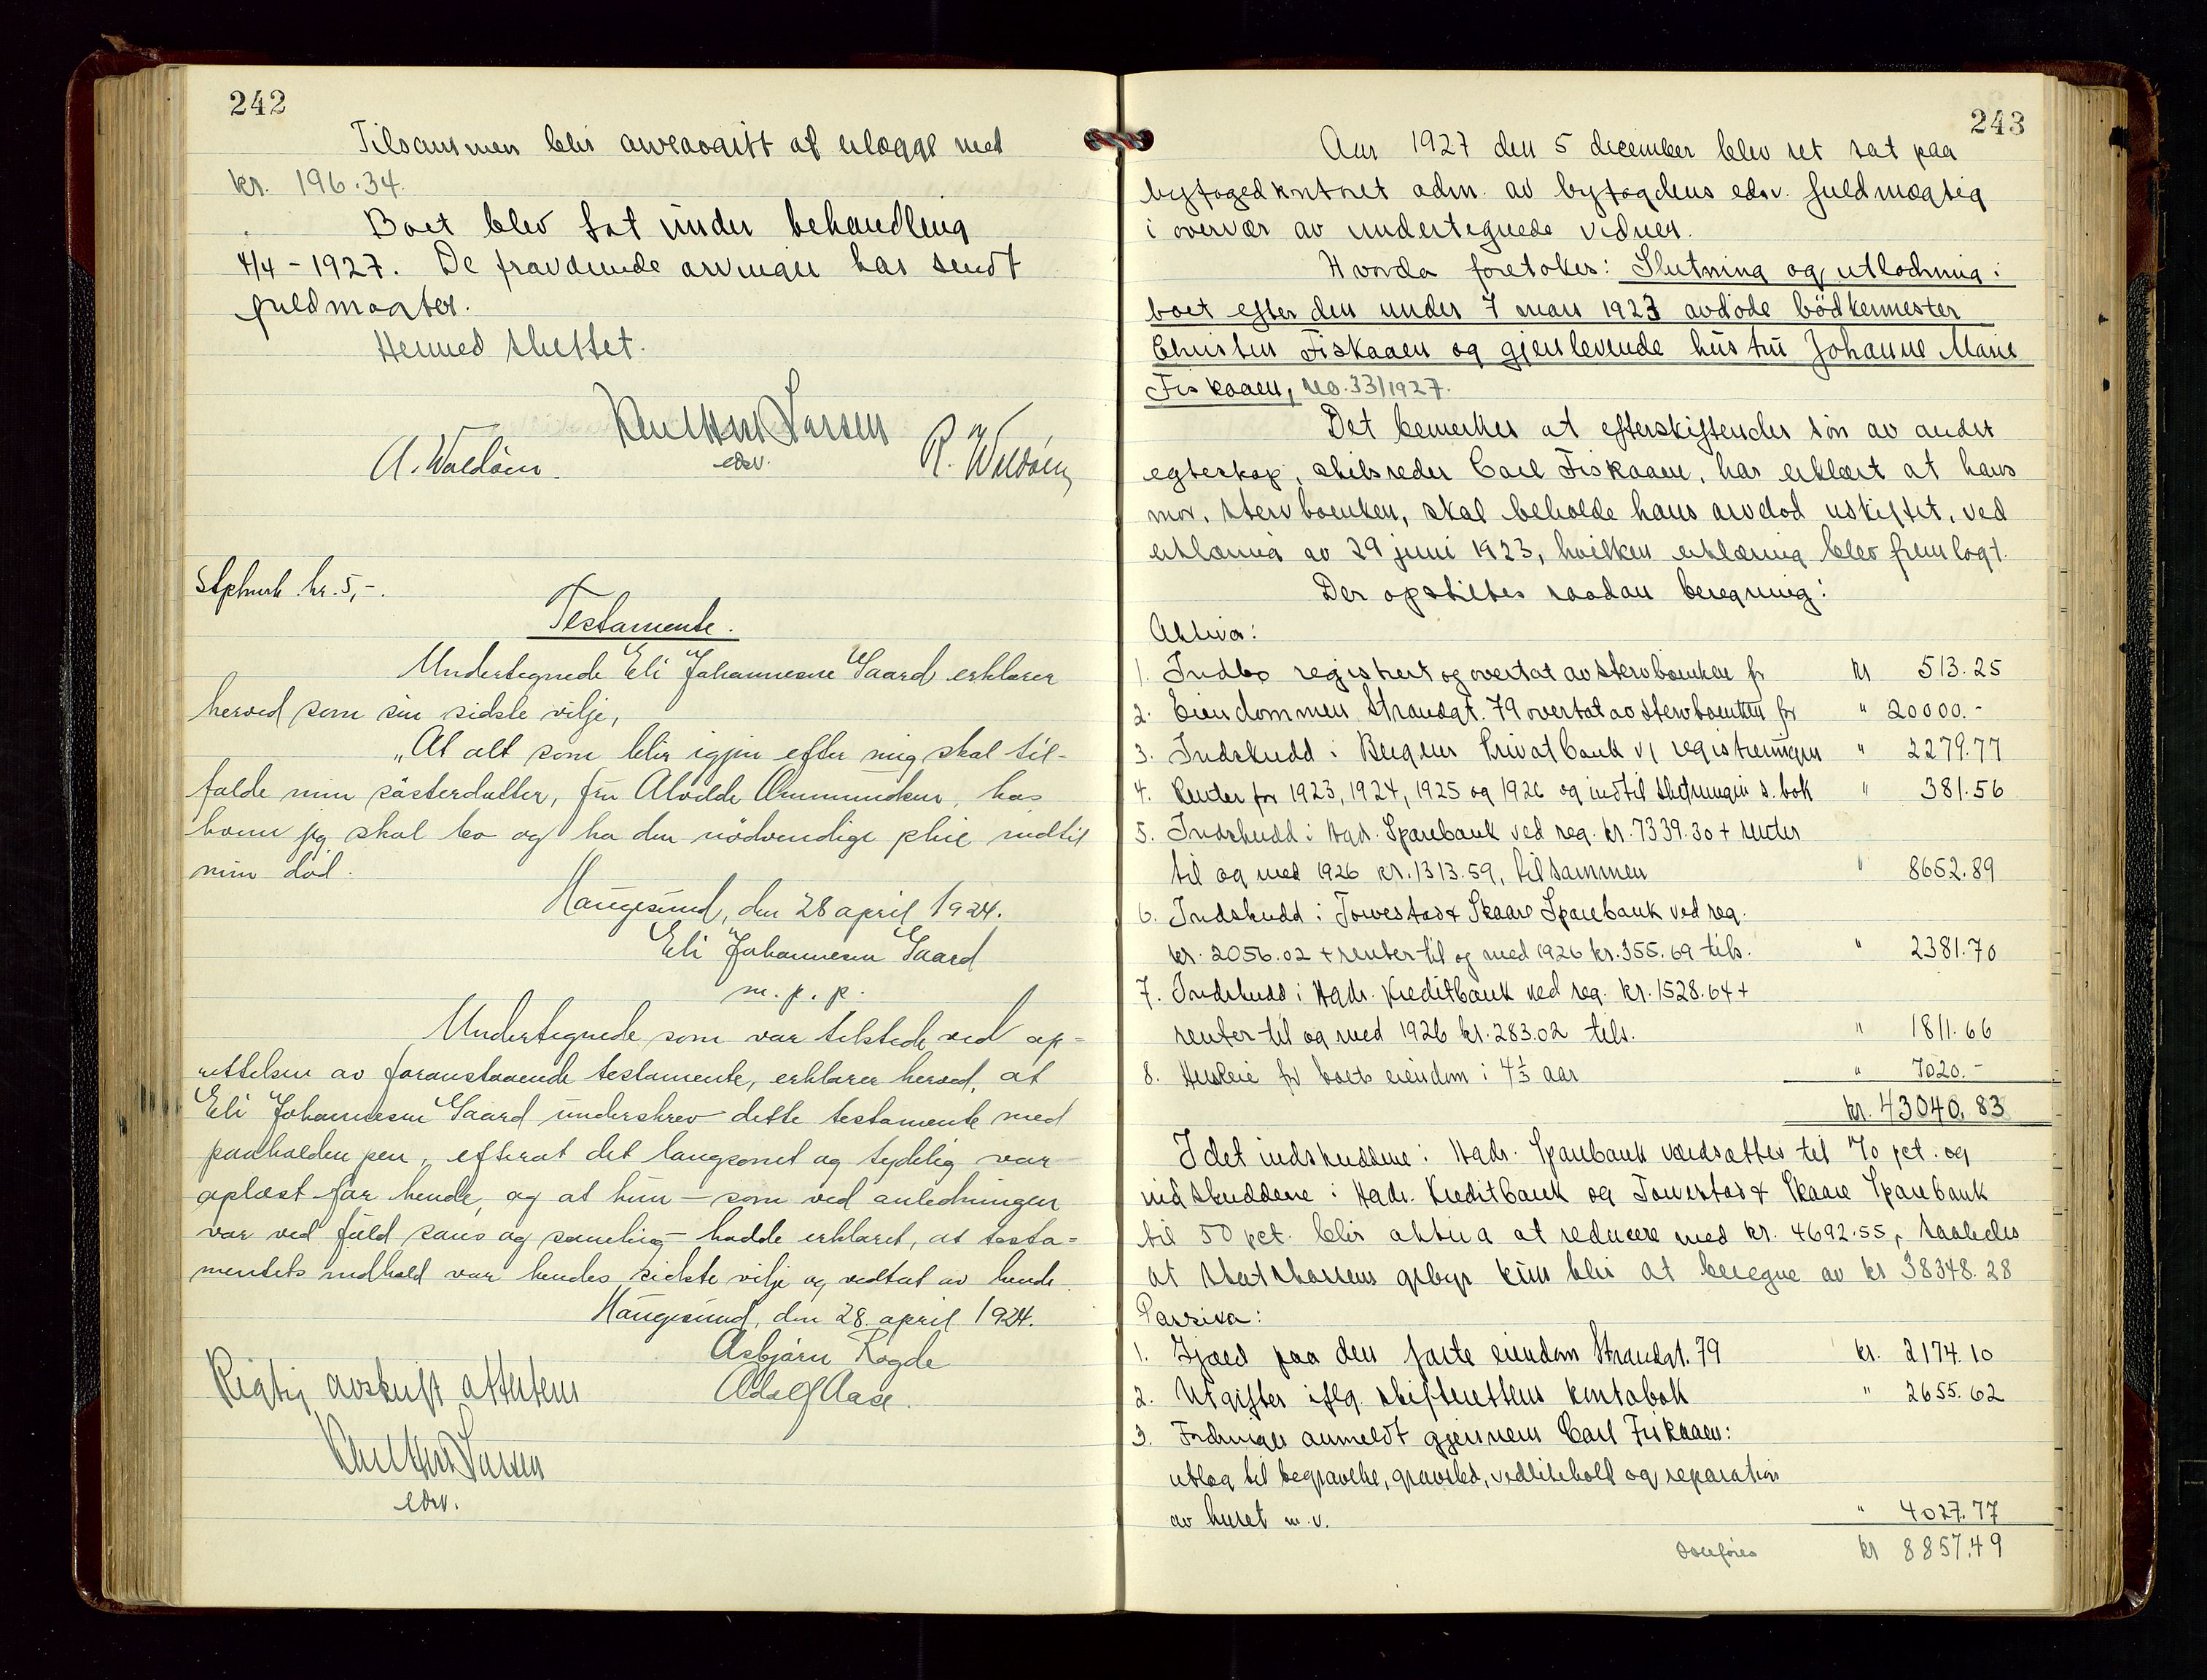 242
Tilsammen blir arveavgift at erlægge med
kr. 196.34.
Boet blev tat under behandling
4/4 - 1927. De fraværende arvinger har sendt
fuldmagter.
Hermed sluttet.
Larsen
A. Waldöen. edsv. R. Waldöen
Stpluerk kr. 5,-.
Testamente.
Undertegnede Eli Johannesen Gaard erklærer
herved som sin sidste vilje,
„At alt som blir igjen efter mig skal til-
falde min sösterdatter, fru Alvilde Ammundsen, hos
hvem jeg skal bo og ha den nödvendige pleie indtil
min död.
Haugesund, den 28 april 1924.
Eli Johannesen Gaard
m. p. p.
Undertegnede som var tilstede ved op=
rettelsen av foranstaaende testamente, erklærer herved, at
Eli Johannesen Gaard underskrev dette testamente med
paaholden pen, efterat det langsomt og tydelig var
oplæst for hende, og at hun – som ved anledningen
var ved fuld sans og samling – hadde erklæret, at testa=
mentets indhold var hendes sidste vilje og vedtat av hende.
Haugesund, den 28 april 1924.
Asbjørn Rogde
Adolf Aase.
Rigtig avskrift attesteres
Larsen
edsv.
243
Aar 1927 den 5 december blev ret sat paa
byfogedkontoret adm. av byfogdens edsv. fuldmægtig
i overvær av undertegnede vidner.
Hvorda foretokes: Slutning og utlodning i
boet efter den under 7 mars 1923 avdöde bödkermester
Christen Fiskaaen og gjenlevende hustru Johanne Marie
Fiskaaen, no. 33/1927.
Det bemerkes at efterskiftendes sön av andet
egteskap, skibsreder Carl Fiskaaen, har erklært at hans
mor, stervboenken, skal beholde hans arvelod uskiftet, ved
erklæring av 29 juni 1923, hvilken erklæring blev fremlagt.
Der opstilles saadan beregning:
Aktiva:
1. Indbo registrert og overtat av stervboenken for kr 513.25
2. Eiendommen Strandgt. 79 overtat av stervboenken for " 20000.-
3. Indskudd i Bergens Privatbank v/ registreringen " 2279.77
4. Renter for 1923, 1924, 1925 og 1926 og indtil slutningen s. bok " 381.56
5. Indskudd i Hgds. Sparebank ved reg. kr. 7339.30 + renter
til og med 1926 kr. 1313.59, tilsammen " 8652.89
6. Indskudd i Torvestad & Skaare Sparebank ved reg.
kr. 2056.02 + renter til og med 1926 kr. 355.69 tils. " 2381.70
7. Indskudd i Hgds. Kreditbank ved reg. kr. 1528.64 +
renter til og med 1926 kr. 283.02 tils. " 1811.66
8. Husleie for boets eiendom i 4⅓ aar " 7020.-
kr. 43040.83
Idet indskuddene i Hgds. Sparebank værdsættes til 70 pct. og
indskuddene i Hgds. Kreditbank og Torvestad & Skaare Sparebank
til 50 pct. blir aktiva at reducere med kr. 4692.55, saaledes
at statskassens gebyr kun blir at beregne av kr 38348.28
Passiva:
1. Gjæld paa den faste eiendom Strandgt. 79 kr. 2174.10
2. Utgifter iflg. skifterettens kontobok " 2655.62
3. Fordringer anmeldt gjennem Carl Fiskaaen:
utlæg til begravelse, gravsted, vedlikehold og reparation
av huset m.v. " 4027.77
Overføres kr 8857.49